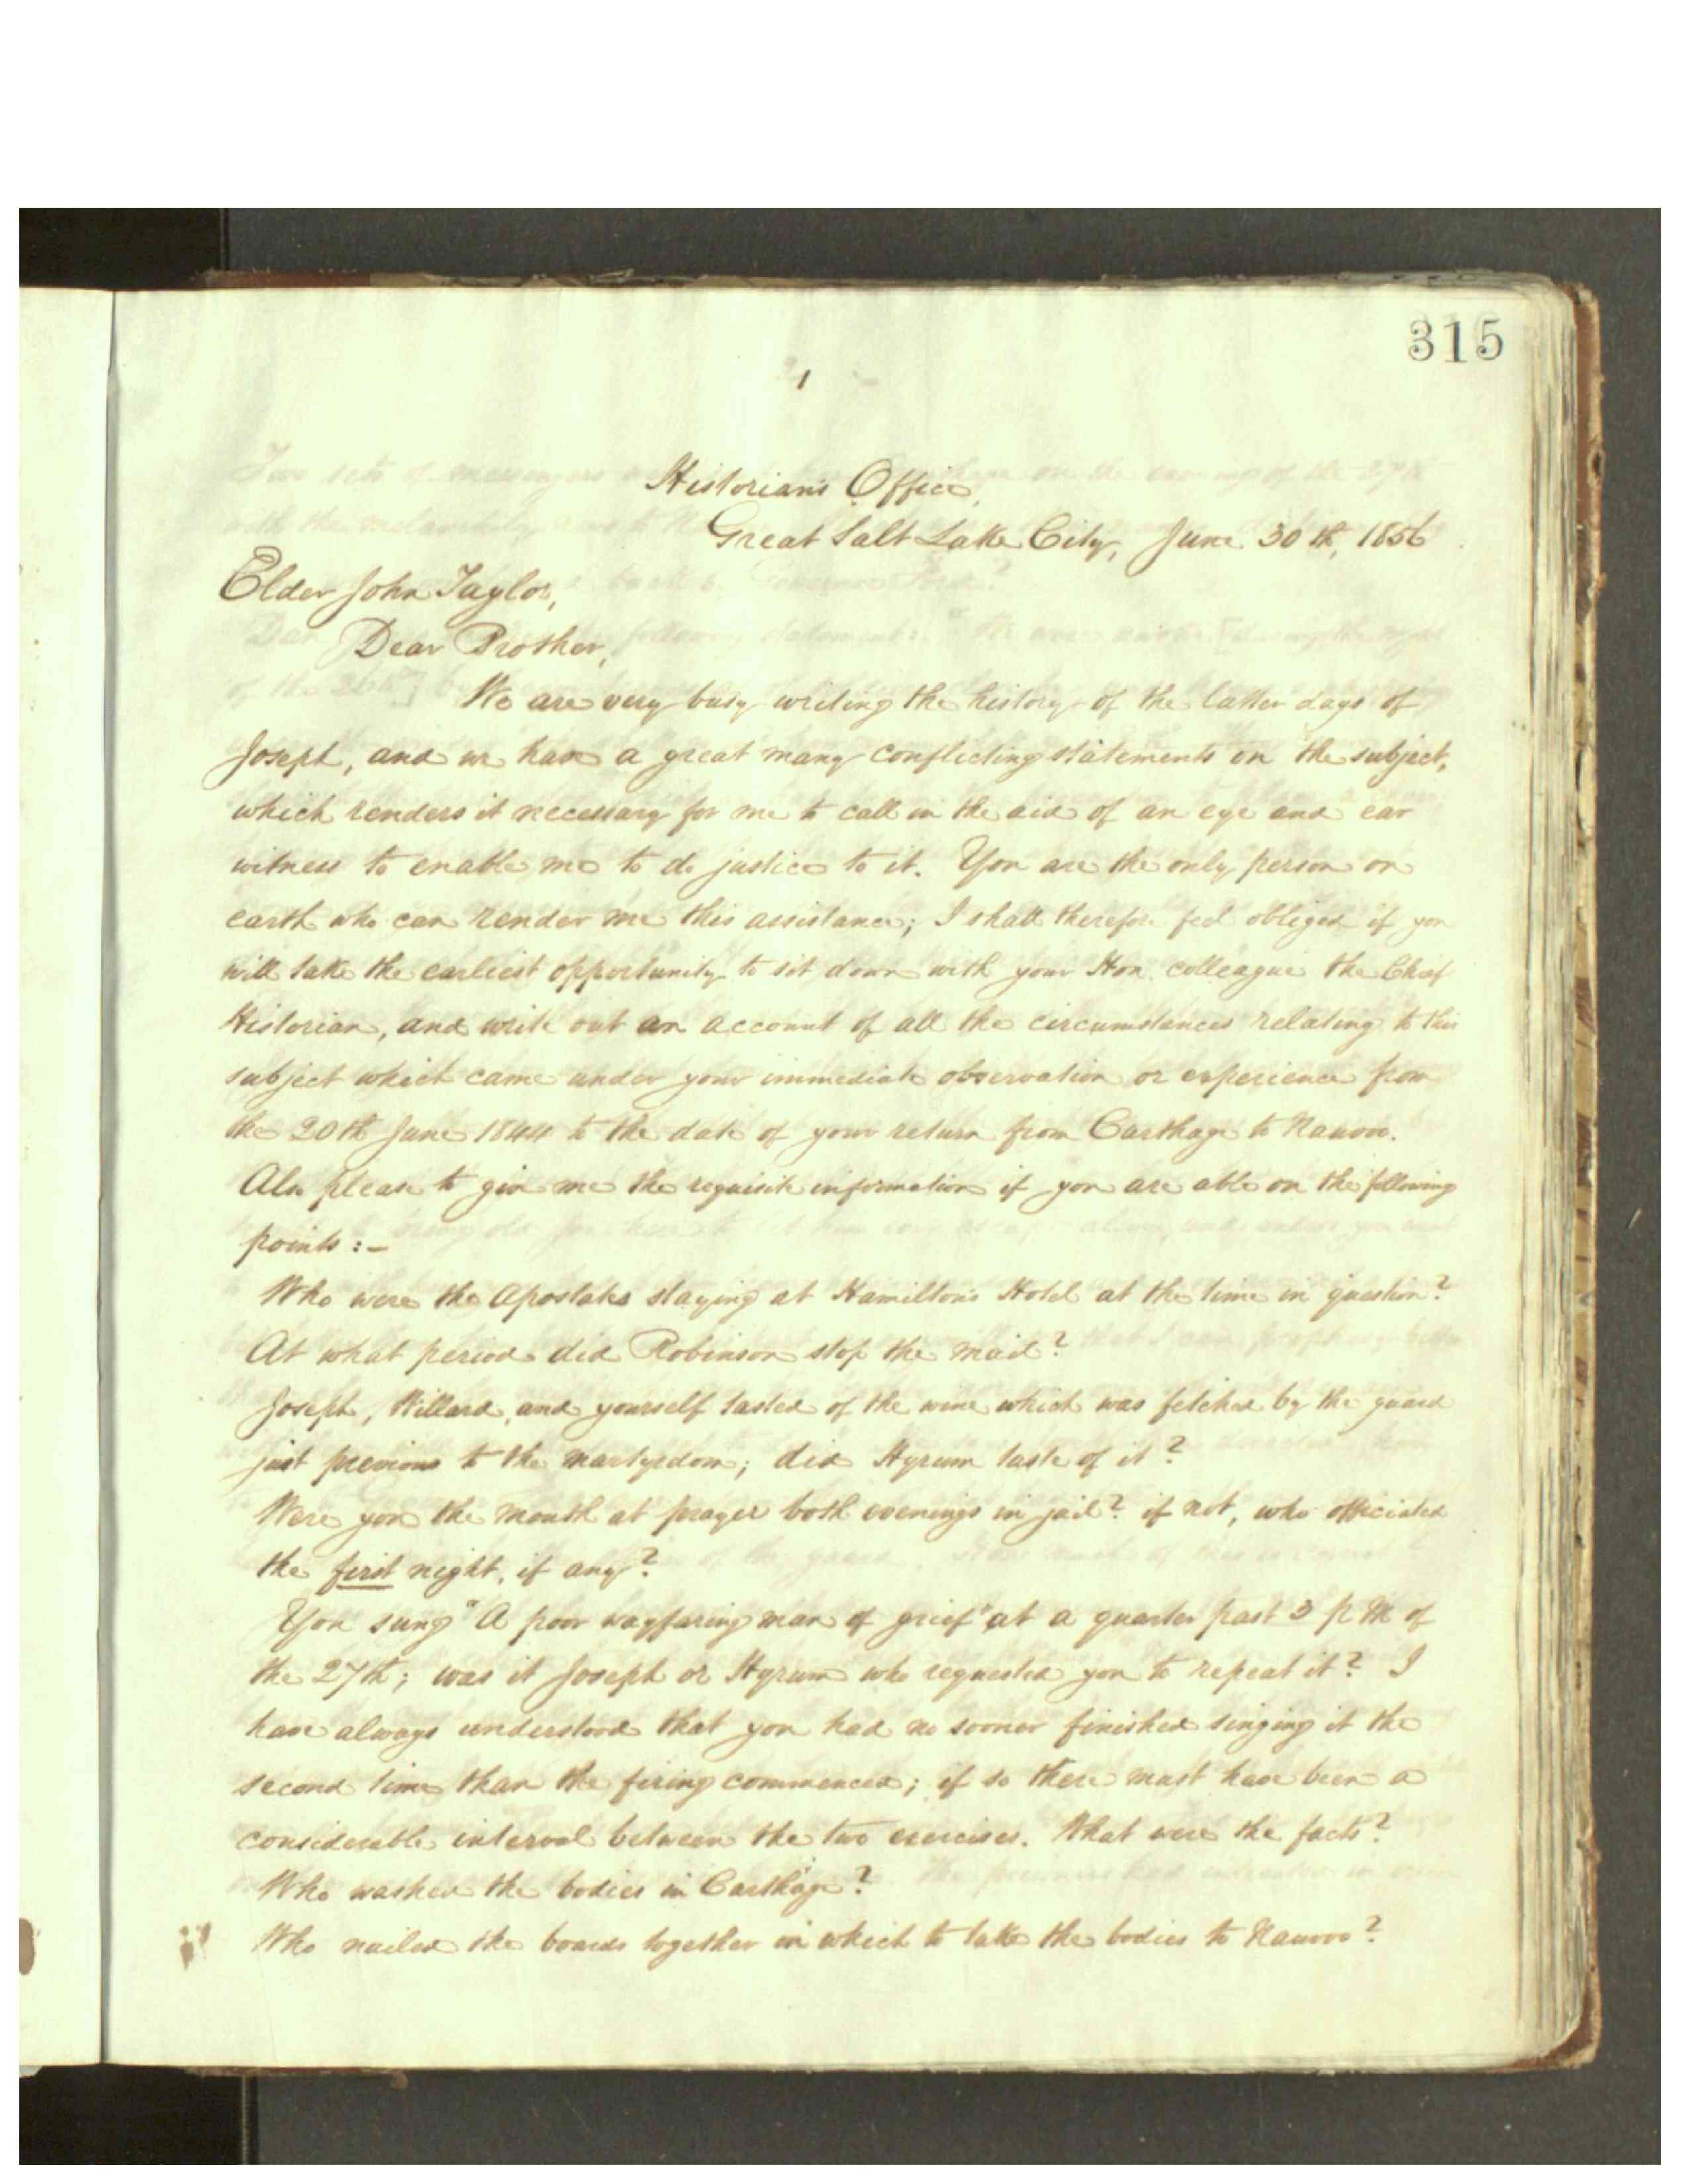 315
1
Historian's Office,
Great Salt Lake City, June 30th, 1856
Elder John Taylor,
Dear Brother,
We are very busy writing the history of the latter days of
Joseph, and we have a great many conflicting statements on the subject,
which renders it necessary for me to call in the aid of an eye and ear
witness to enable me to do justice to it. You are the only person on
earth who can render me this assistance; I shall therefore feel obliged if you
will take the earliest opportunity to sit down with your Hon. colleague the Chief
Historian, and write out an account of all the circumstances relating to this
subject which came under your immediate observation or experience from
the 20th June 1844 to the date of your return from Carthage to Nauvoo.
Also please to give me the requisite information if you are able on the following
points:-
Who were the Apostates staying at Hamilton's Hotel at the time in question?
At what period did Robinson stop the mail?
Joseph, Willard, and yourself tasted of the wine which was fetched by the guard
just previous to the martyrdom; did Hyrum taste of it?
Were you the mouth at prayer both evenings in jail? if not, who officiated
the first night, if any?
You sung "A poor wayfaring man of grief" at a quarter past 3 p M of
the 27th; was it Joseph or Hyrum who requested you to repeat it? I
have always understood that you had no sooner finished singing it the
second time than the firing commenced; if so there must have been a
considerable interval between the two exercises. What were the facts?
Who washed the bodies in Carthage?
Who nailed the boards together in which to take the bodies to Nauvoo?